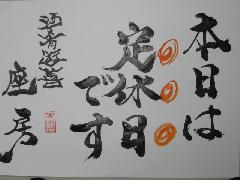 本日は
定休日
です
座居